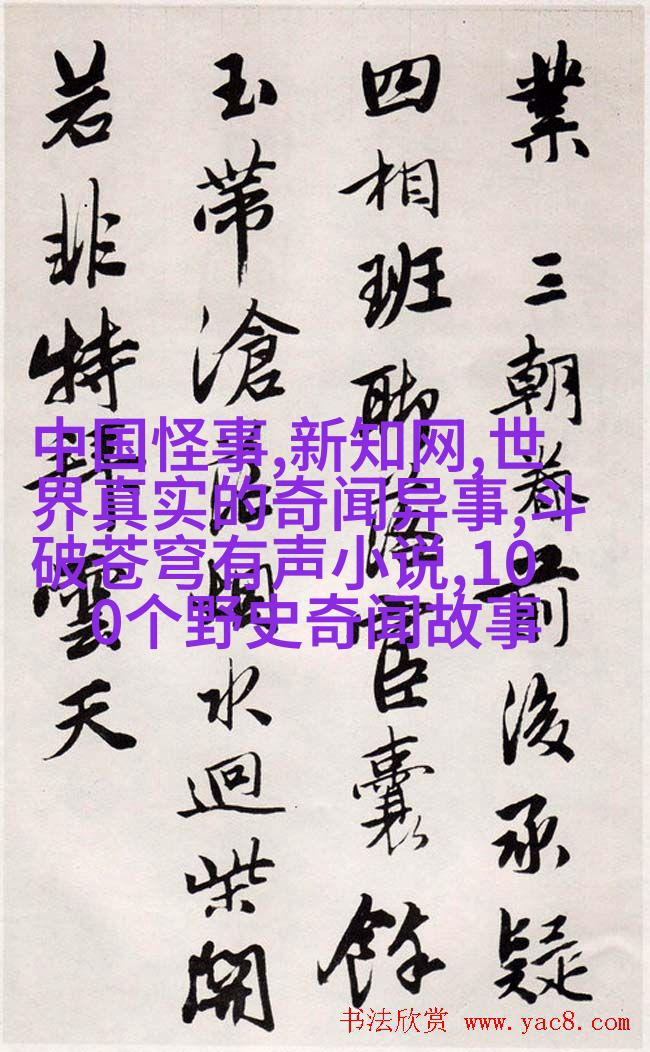 業 三朝眷前後承疑
四相班聯官臣囊餘
玉帶滄水迴柴開
若非特拜雲天
中国怪事,新知网,世
界真实的奇闻异事,斗
破苍穹有声小说,10
0个野史奇闻故事
书法欣赏 www.yac8.com